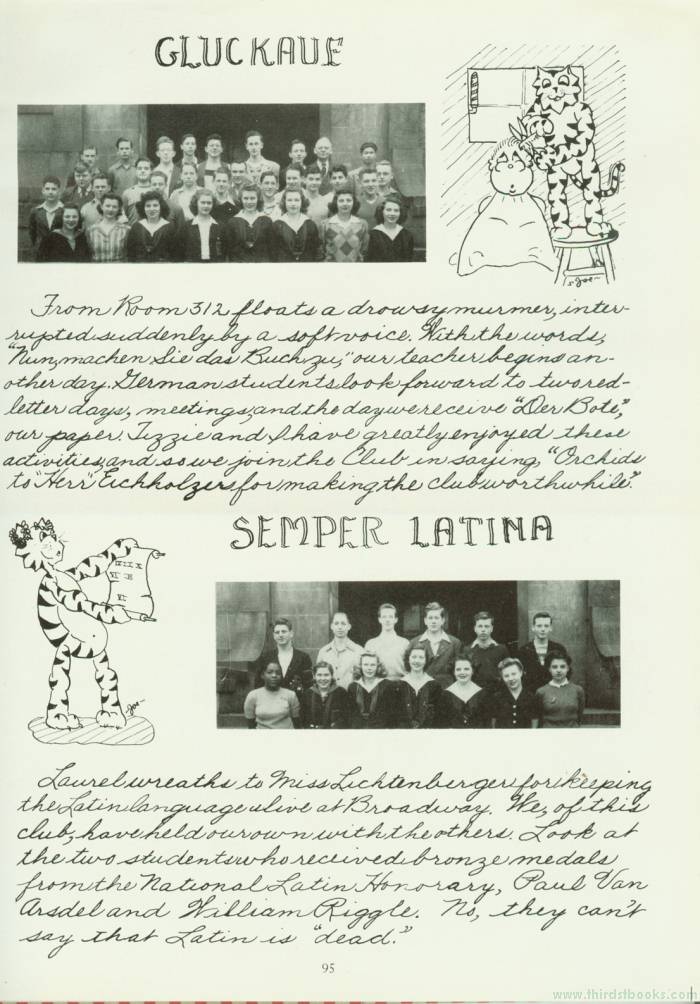 GLUCKAUF
Joe
From Room 312 floats a drowsy murmer, inter-
rupted suddenly by a soft voice. With the words,
"Nun, machen Sie das Buch zu," our teacher begins an-
other day. German students look forward to two red-
letter days, meetings, and the day we receive "Der Bote,"
our paper. Tizzie and I have greatly enjoyed these
activities, and so we join the Club in saying, "Orchids
to "Herr" Eichholzers for making the club worthwhile".
SEMPER LATINA
Joe
Laurel wreaths to Miss Lichtenberger for keeping
the Latin language alive at Broadway. We, of this
club, have held our own with the others. Look at
the two students who received bronze medals
from the National Latin Honorary, Paul Van
Arsdel and William Riggle. No, they can't
say that Latin is "dead."
95
www.thirdstbooks.com